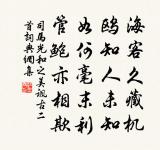 海客久藏机
鸥知人未知
如何毫末利
管鲍亦相欺
司馬光和之美諷古二
首詞典網集